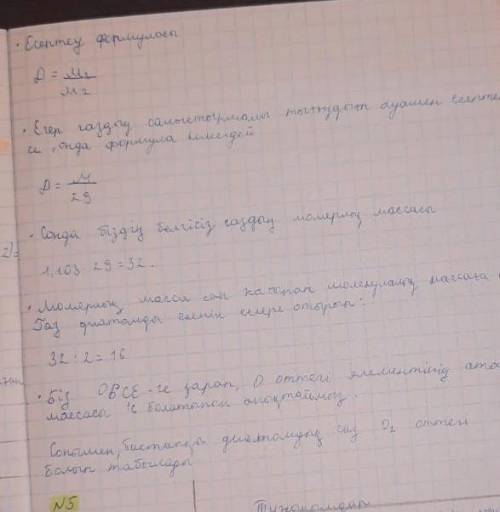 • Есептеу формуласы
D = M1
M2
• Егер газдың салыстырмалы тығыздығын ауамен есептеп
се, онда формула келесідей
D = M
29
• Сонда біздің белгісіз газдың молярлық массасы
2)=
1,103 · 29 = 32.
• Молярлық масса сан жағынан молекулалық массаға
Газ диатомды екенін ескере отырып:
32 : 2 = 16
• Біз ПСХЭ-ге қарап, О оттегі элементінің
массасы 16 болатынын анықтаймыз.
Сонымен, бастапқы диатомдық газ O2 оттегі
болып табылады
N5